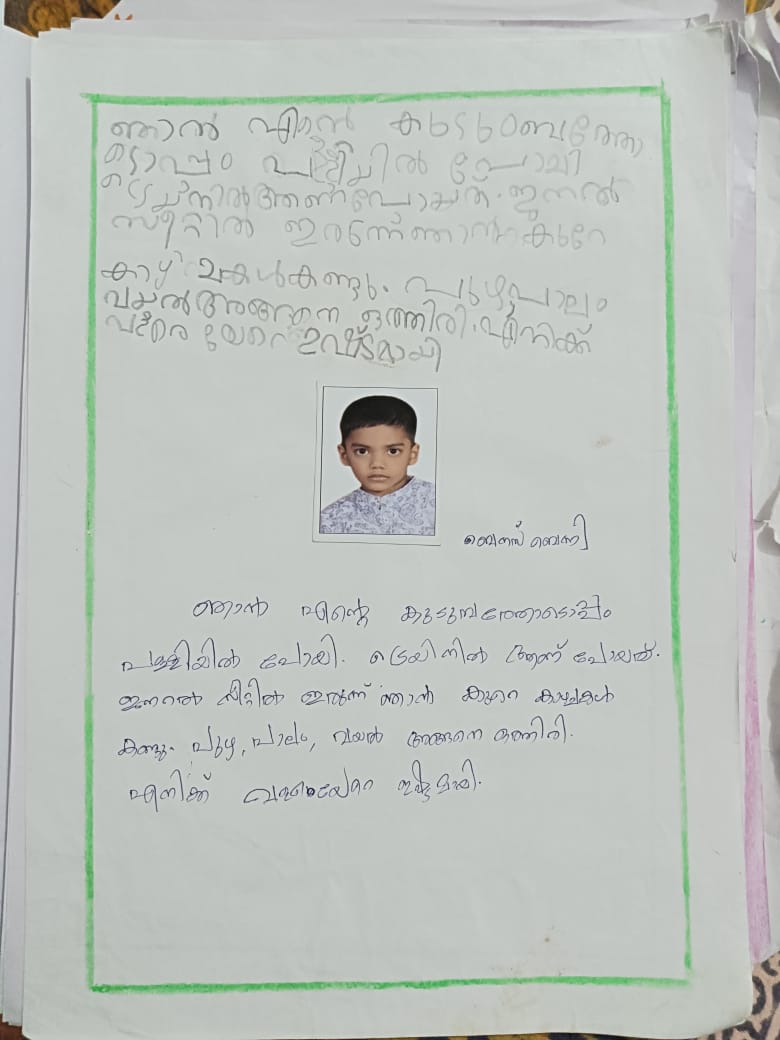 ഞാൻ എൻ്റെ കുടുംബത്തോ
ടൊപ്പം പള്ളിയിൽ പോയി
ട്രെയ്നിൽ ആണ് പോയത്. ജനൽ
സീറ്റിൽ ഇരുന്ന് ഞാൻ കുറേ
കാഴ്ചകൾ കണ്ടു. പുഴ പാലം
വയൽ അങ്ങനെ ഒത്തിരി. എനിക്ക്
വളരെ യേറെ ഇഷ്ടമായി
ബെന്നി
ഞാൻ എന്റെ കുടുംബത്തോടൊപ്പം
പള്ളിയിൽ പോയി. ട്രെയിനിൽ ആണ് പോയത്.
ജനൽ സീറ്റിൽ ഇരുന്ന് ഞാൻ കുറേ കാഴ്ചകൾ
കണ്ടു. പുഴ, പാലം, വയൽ അങ്ങനെ ഒത്തിരി.
എനിക്ക് വളരെയേറെ ഇഷ്ടമായി.